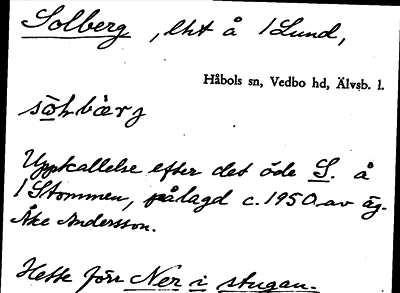 Solberg, lht å 1 Lund,
Håbols sn, Vedbo hd, Älvsb. l.
Uppkallelse efter det öde S. å
1 Stommen, pålagd c. 1950 av äg.
Åke Andersson.
Hette förr Ner i stugan.